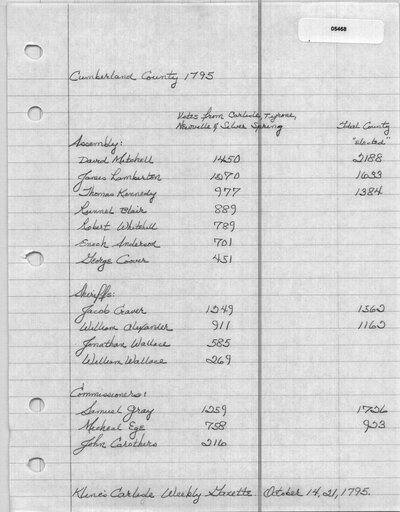 05468
Cumberland County 1795
Votes from Carlisle, Tyrone,
Newville & Silver Spring Total County
Assembly: "elected"
David Mitchell 1450 2188
James Lamberton 1270 1633
Thomas Kennedy 977 1384
Runnel Blair 889
Robert Whitehill 789
Enoch Anderson 701
George Coover 451
Sheriffs:
Jacob Craver 1249 1362
William Alexander 911 1162
Jonathan Wallace 585
William Wallace 269
Commissioners:
Samuel Gray 1259 1726
Micheal Ege 758 923
John Carothers 216
Kline's Carlisle Weekly Gazette October 14, 21, 1795.